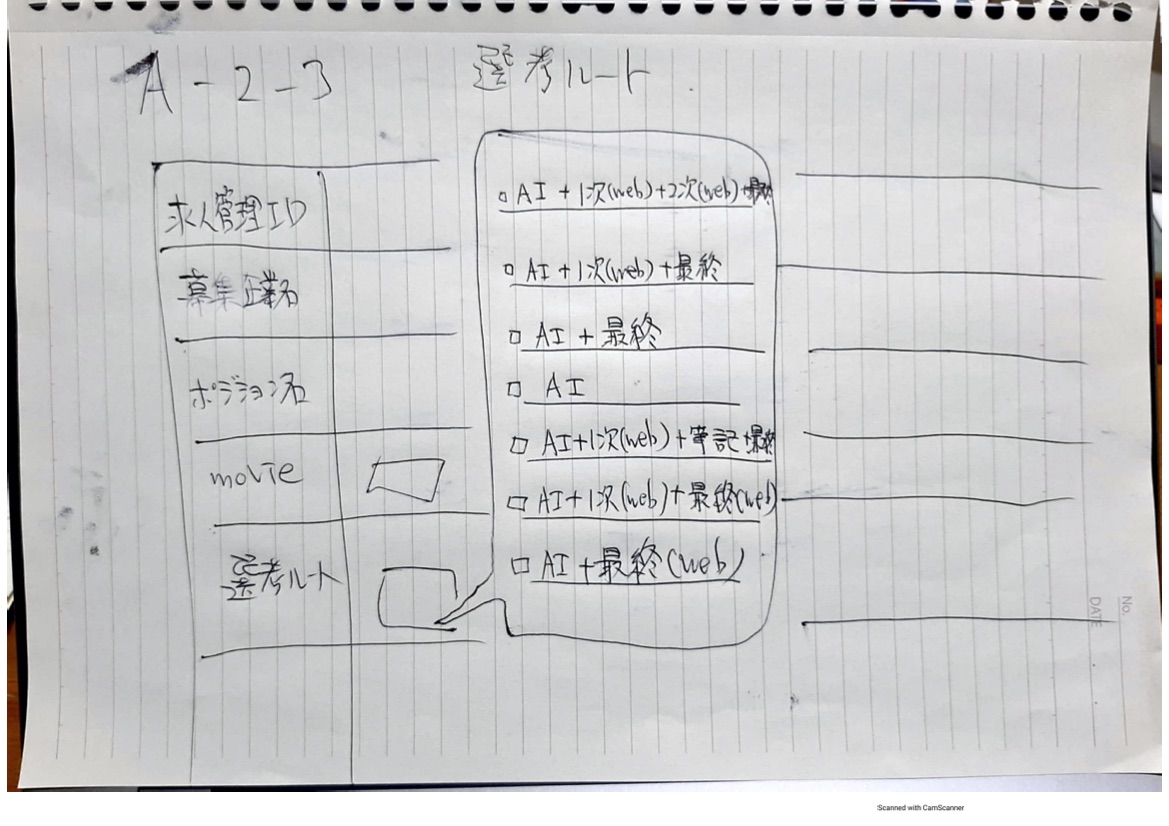 A-2-3 選考ルート
求人管理ID
募集企業名
ポジション名
movie
選考ルート
AI + 1次(web)+2次(web)+最終
AI + 1次(web)+最終
AI + 最終
AI
AI+1次(web)+筆記+最終
AI+1次(web)+最終(web)
AI+最終(web)
No.
DATE
Scanned with CamScanner